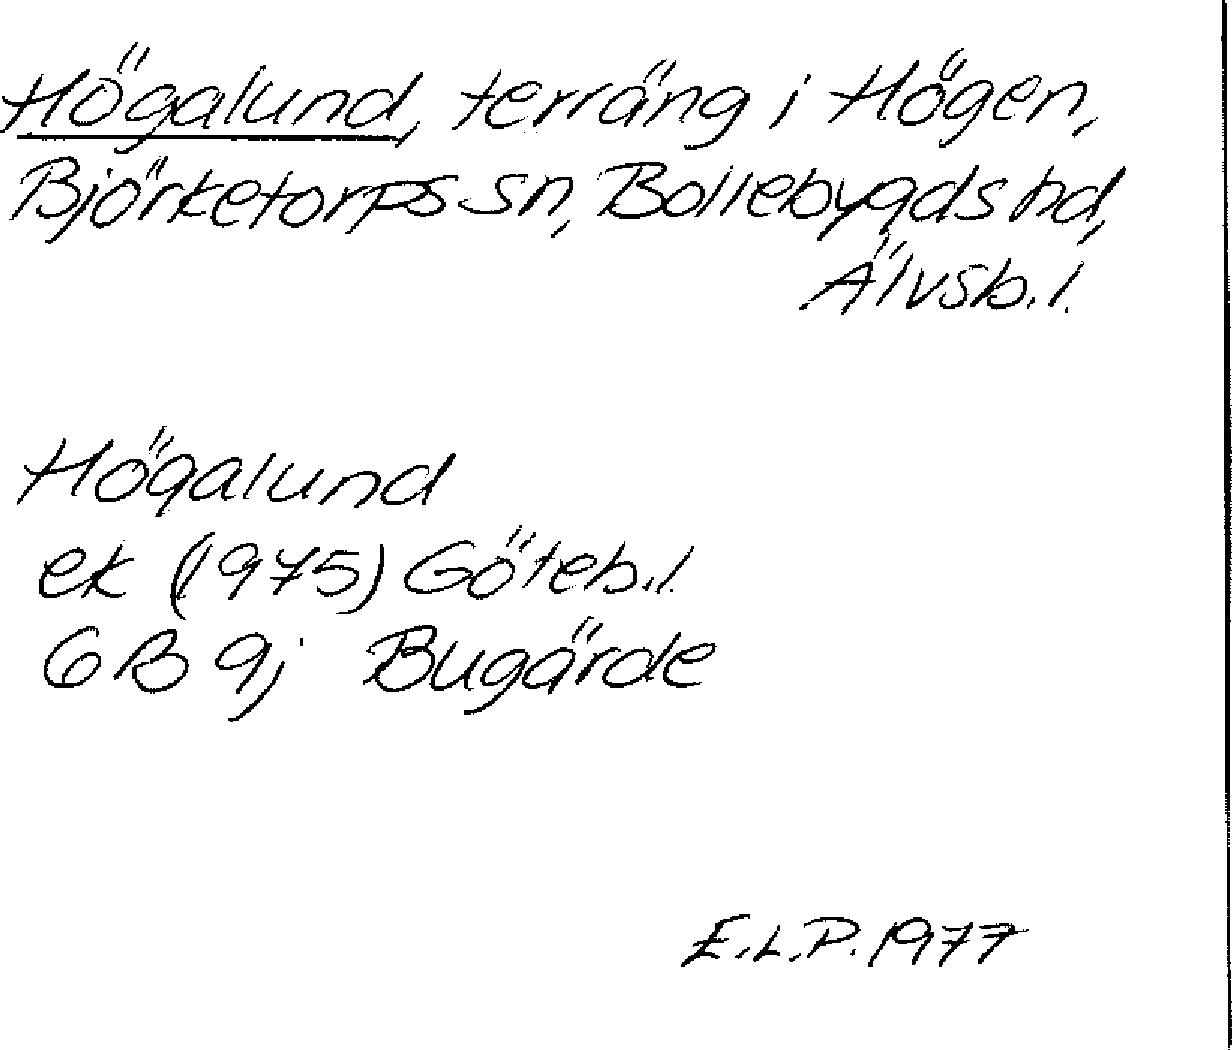 Högalund, terräng i Högen,
Björketorps sn, Bollebygds hd,
Älvsb. l.
Högalund
ek (1975) Göteb. l.
6B 9j Bugärde
E.L.P. 1977